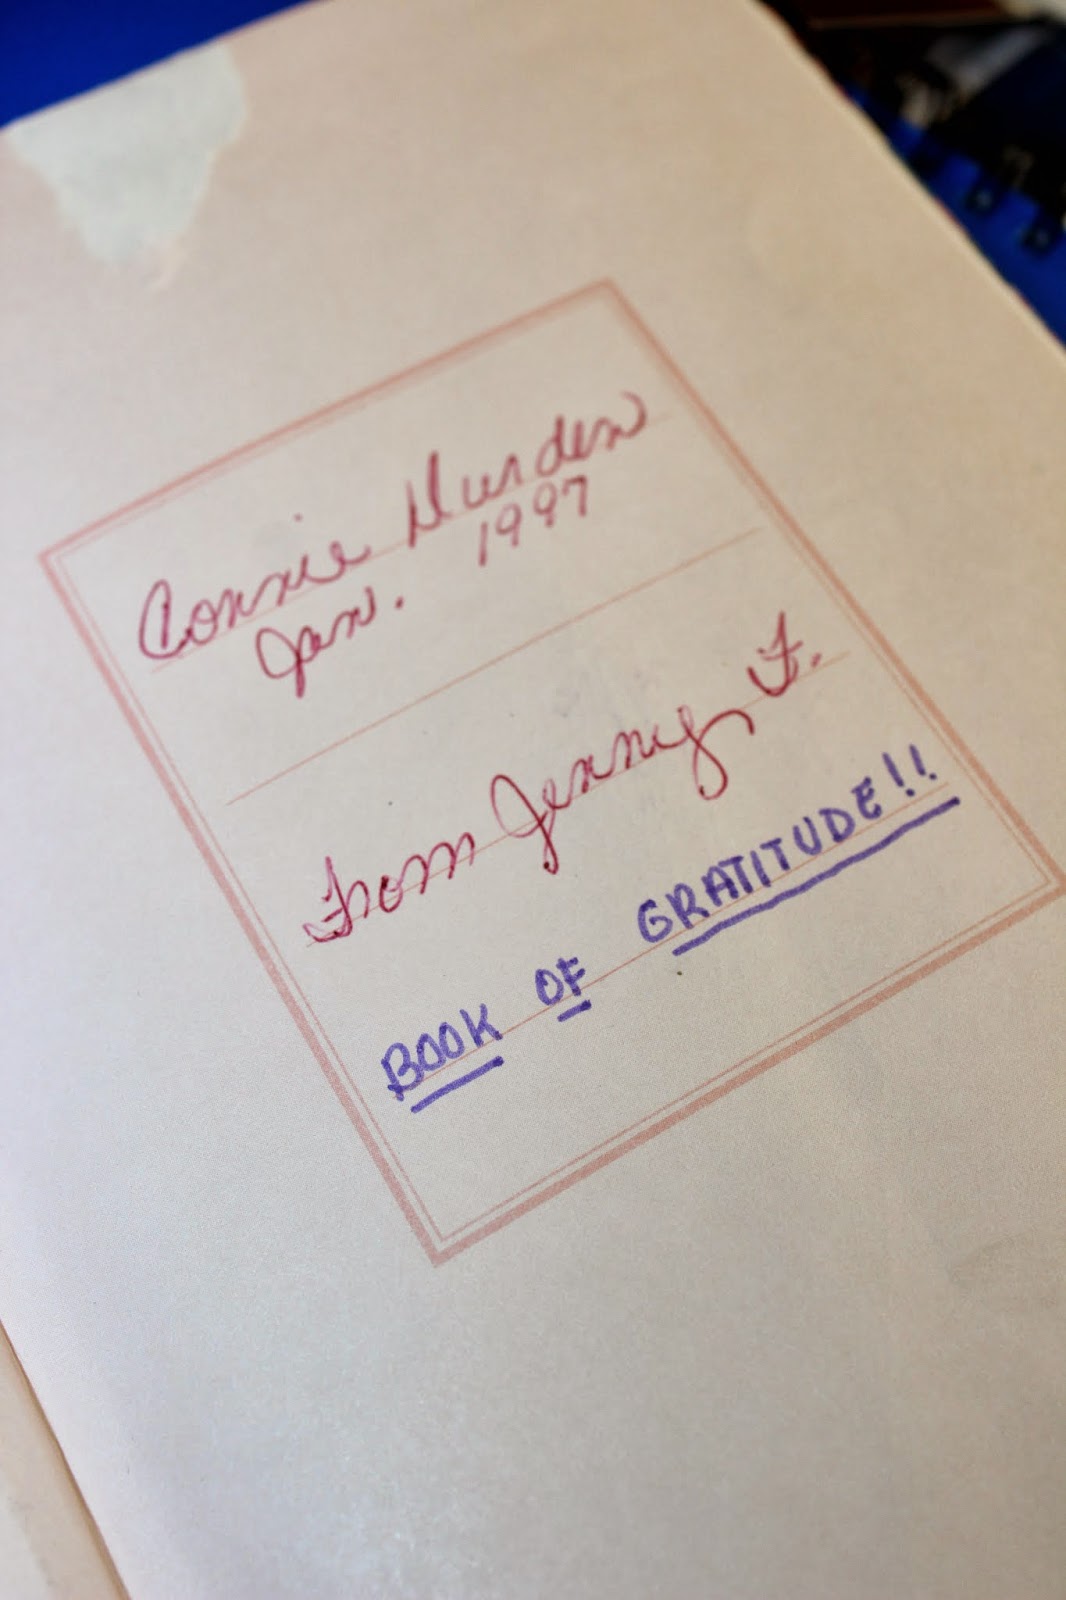 Connie
Jan. 1997
From Jenny F.
BOOK OF GRATITUDE!!